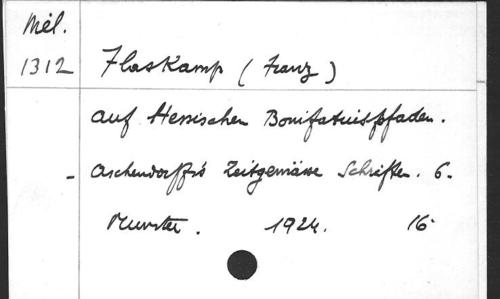 Mél.
1312 Flaskamp ( Franz )
Auf Hessischen Bonifatuispfaden.
- Aschendorffs Zeitgemässe Schriften. 6.
Munster. 1924. 16